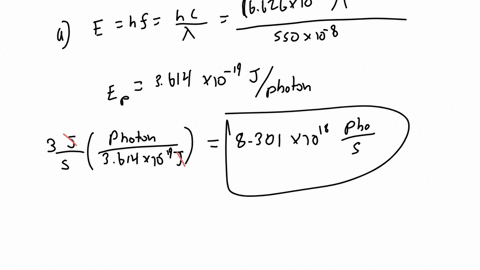 a) E = hf = hc/λ = (6.626×10 ) /550×10^-8
E_p = 3.614 ×10^-19 J/photon
3 J/s (Photon/3.614×10^-19 J) = 8.301 ×10^18 pho/s